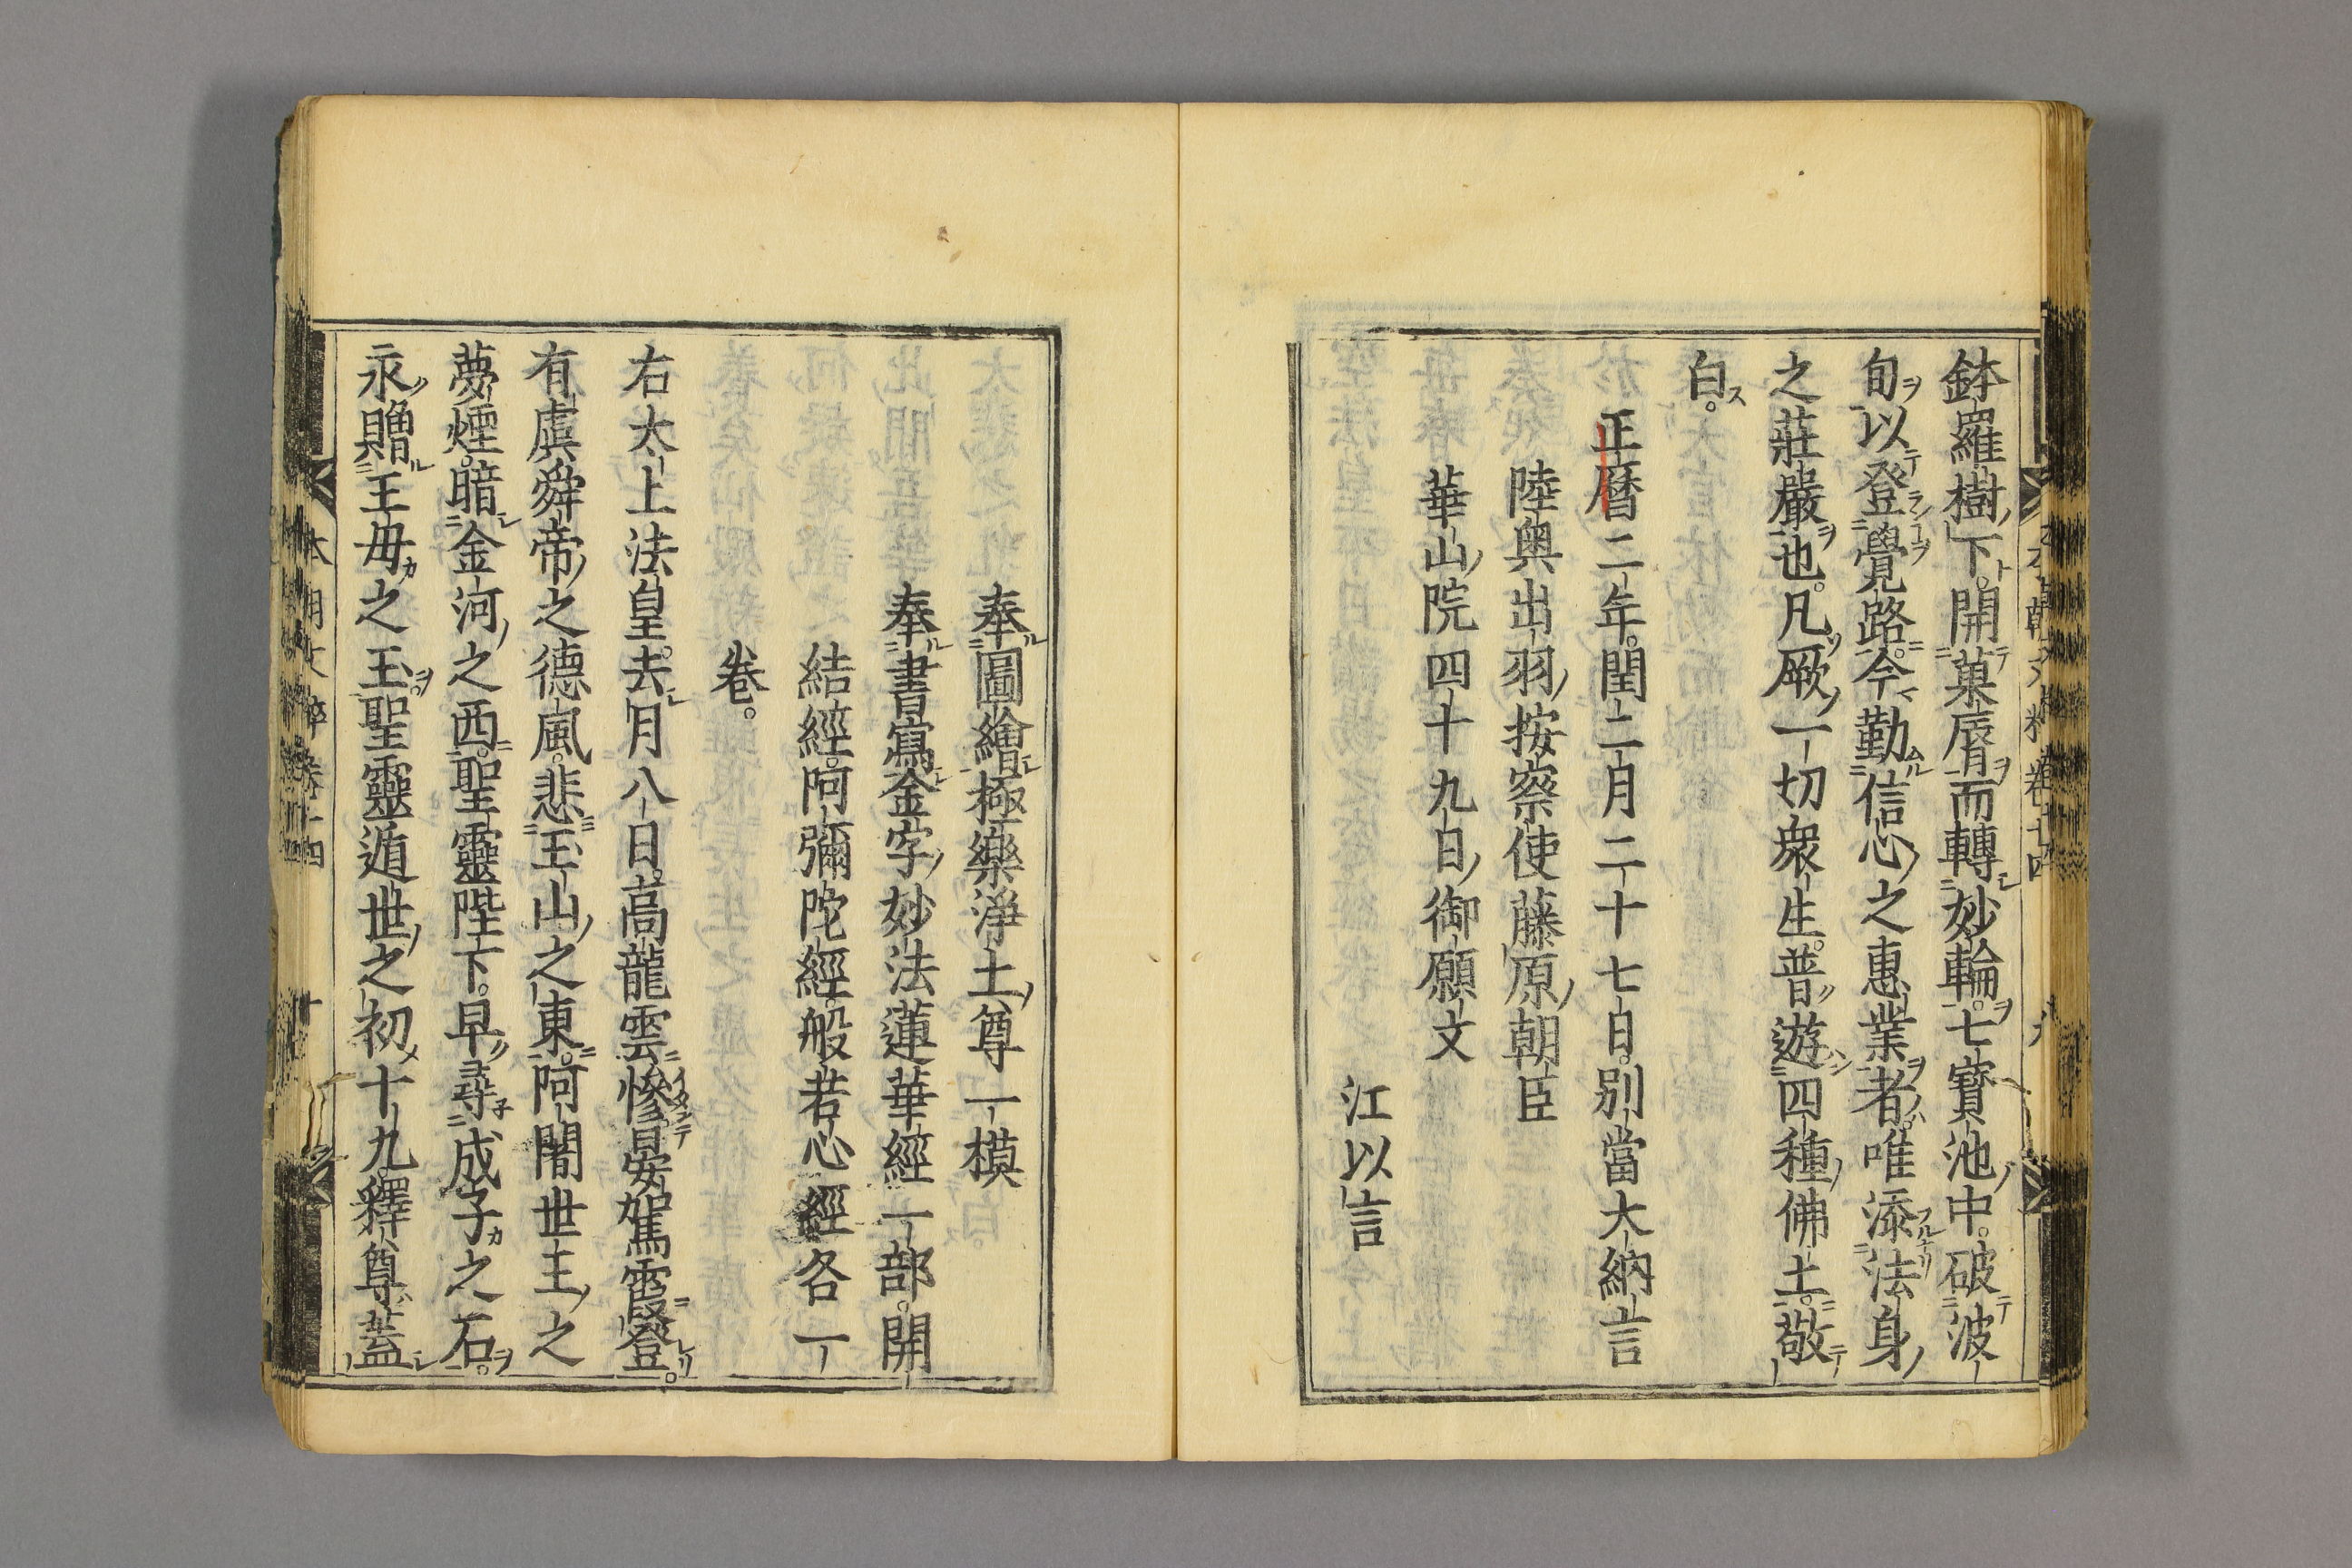 鉢羅樹下。開菓脣而轉妙輪。七寶池中。破波
旬以登覺路。今勤信心之惠業者。唯添法身
之莊嚴也。凡厥一切衆生。普遊四種佛土。敬
白。
正曆二年。閏二月二十七日。別當大納言
陸奧出羽按察使藤原朝臣
華山院四十九日御願文
江以言
奉圖繪極樂淨土尊一模
奉書寫金字妙法蓮華經一部。開
結經。阿彌陀經。般若心經各一
卷。
右太上法皇。去月八日。高龍雲慘。晏駕霞登。
有虞舜帝之德風。悲玉山之東。阿闍世王之
夢煙。暗金河之西。聖靈陛下。早尋成子之石。
永贈王母之玉。聖靈遁世之初。十九釋尊蓋
本朝文粹卷十四
十